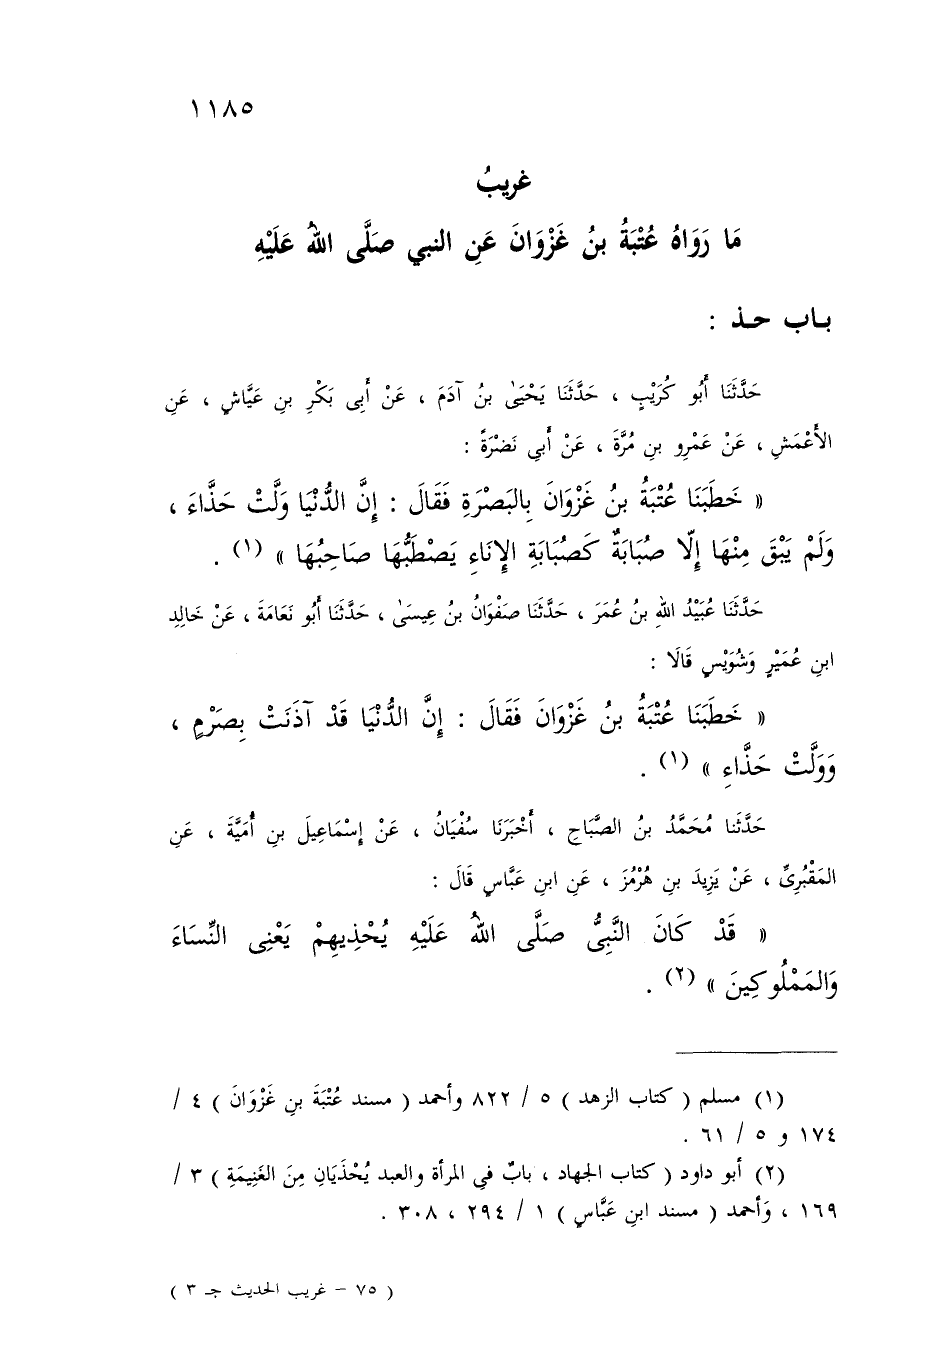 ١١٨٥
غريبُ
مَا رَوَاهُ عُتْبَةُ بنُ غَزْوَانَ عَنِ النبي صَلَّى اللهُ عَلَيْهِ
بـاب حـذ :
حَدَّثَنَا أَبُو كُرَيْبٍ ، حَدَّثَنَا يَحْيَىٰ بنُ آدَمَ ، عَنْ أَبِى بَكْرِ بنِ عَيَّاشٍ ، عَنِ
الأَعْمَشِ ، عَنْ عَمْرِو بنِ مُرَّةَ ، عَنْ أَبي نَضْرَةً :
« خَطَبَنَا عُتْبَةُ بنُ غَزْوَانَ بِالبَصْرَةِ فَقَالَ : إِنَّ الدُّنْيَا وَلَّتْ حَذَّاءَ ،
وَلَمْ يَبْقَ مِنْهَا إِلّا صُبَابَةٌ كَصُبَابَةِ الإِنَاءِ يَصْطَبُّهَا صَاحِبُهَا » (١) .
حَدَّثَنَا عُبَيْدُ اللهِ بنُ عُمَرَ ، حَدَّثَنَا صَفْوَانُ بنُ عِيسَىٰ ، حَدَّثَنَا أَبُو نَعَامَةَ ، عَنْ خَالِدِ
ابنِ عُمَيْرٍ وَشُوَيْسٍ قَالَا :
« خَطَبَنَا عُتْبَةُ بنُ غَزْوَانَ فَقَالَ : إِنَّ الدُّنْيَا قَدْ آذَنَتْ بِصَرْمٍ ،
وَوَلَّتْ حَذَّاءِ » (١) .
حَدَّثَنا مُحَمَّدُ بنُ الصَّبَاحِ ، أَخْبَرَنَا سُفْيَانُ ، عَنْ إِسْمَاعِيلَ بنِ أُمَيَّةَ ، عَنِ
المَقْبُرِىِّ ، عَنْ يَزِيدَ بنِ هُرْمُزَ ، عَنِ ابنِ عَبَّاسٍ قَالَ :
« قَدْ كَانَ النَّبِىُّ صَلَّى اللهُ عَلَيْهِ يُحْذِيهِمْ يَعْنِى النِّسَاءَ
وَالمَمْلُوكِينَ » (٢) .
(١) مسلم ( كتاب الزهد ) ٥ / ٨٢٢ وأحمد ( مسند عُتْبَةَ بنِ غَزْوَانَ ) ٤ /
١٧٤ و ٥ / ٦١ .
(٢) أبو داود ( كتاب الجهاد ، بابٌ في المرأة والعبد يُحْذَيَانِ مِنَ الغَنِيمَةِ ) ٣ /
١٦٩ ، وَأحمد ( مسند ابنِ عَبَّاسٍ ) ١ / ٢٩٤ ، ٣٠٨ .
( ٧٥ – غريب الحديث جـ ٣ )